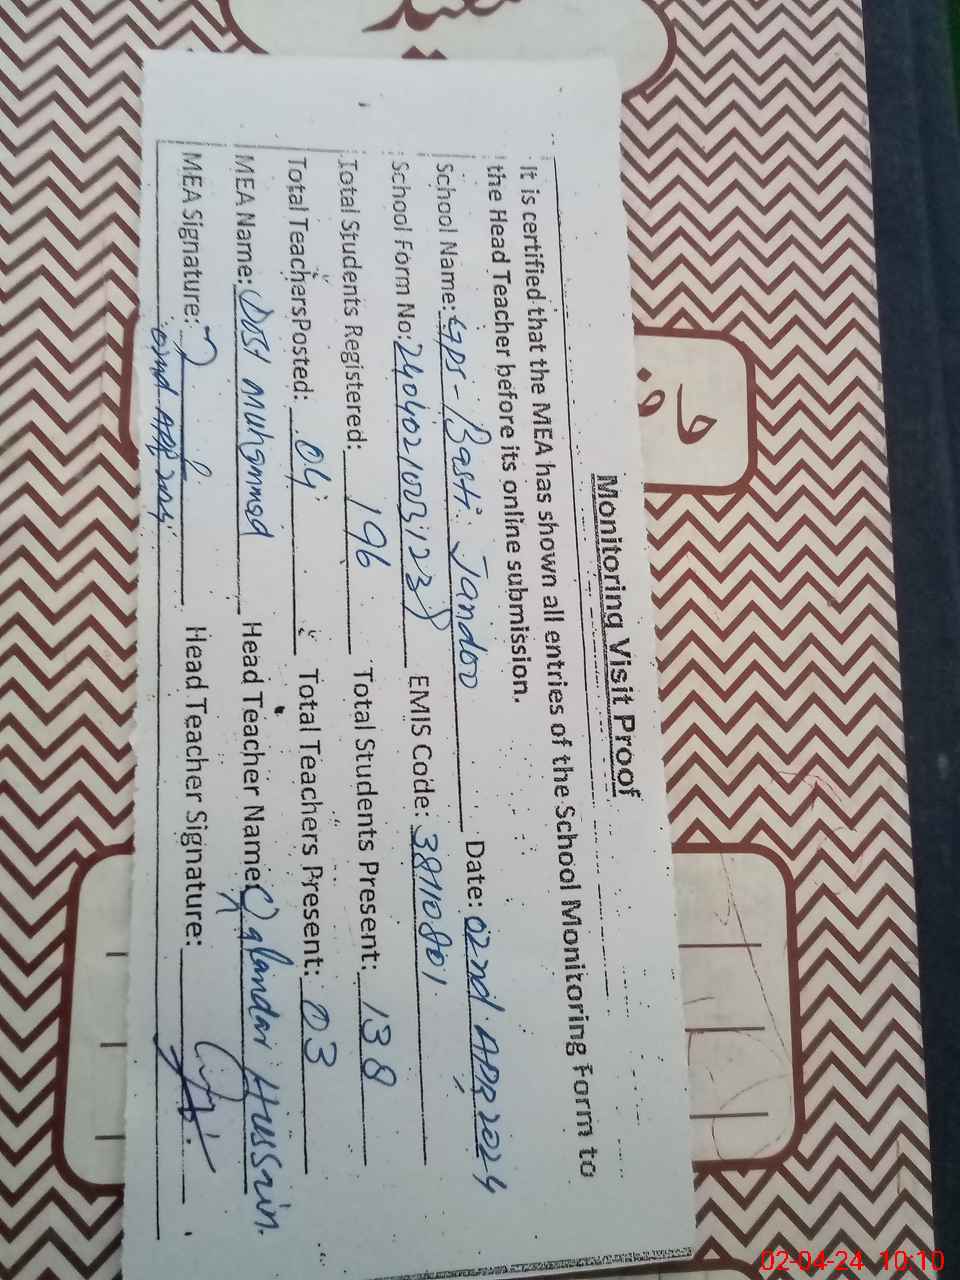 Monitoring Visit Proof
It is certified that the MEA has shown all entries of the School Monitoring Form to
the Head Teacher before its online submission.
School Name: GPS - Basti Jandoo Date: 02nd APR 2024
School Form No: EMIS Code:
Total Students Registered: 196 Total Students Present: 138
Total Teachers Posted: 04 Total Teachers Present: 03
MEA Name: Dost Muhammad Head Teacher Name: Qalandar Hussain
MEA Signature: Head Teacher Signature:
02nd APR 2024
02-04-24 10:10